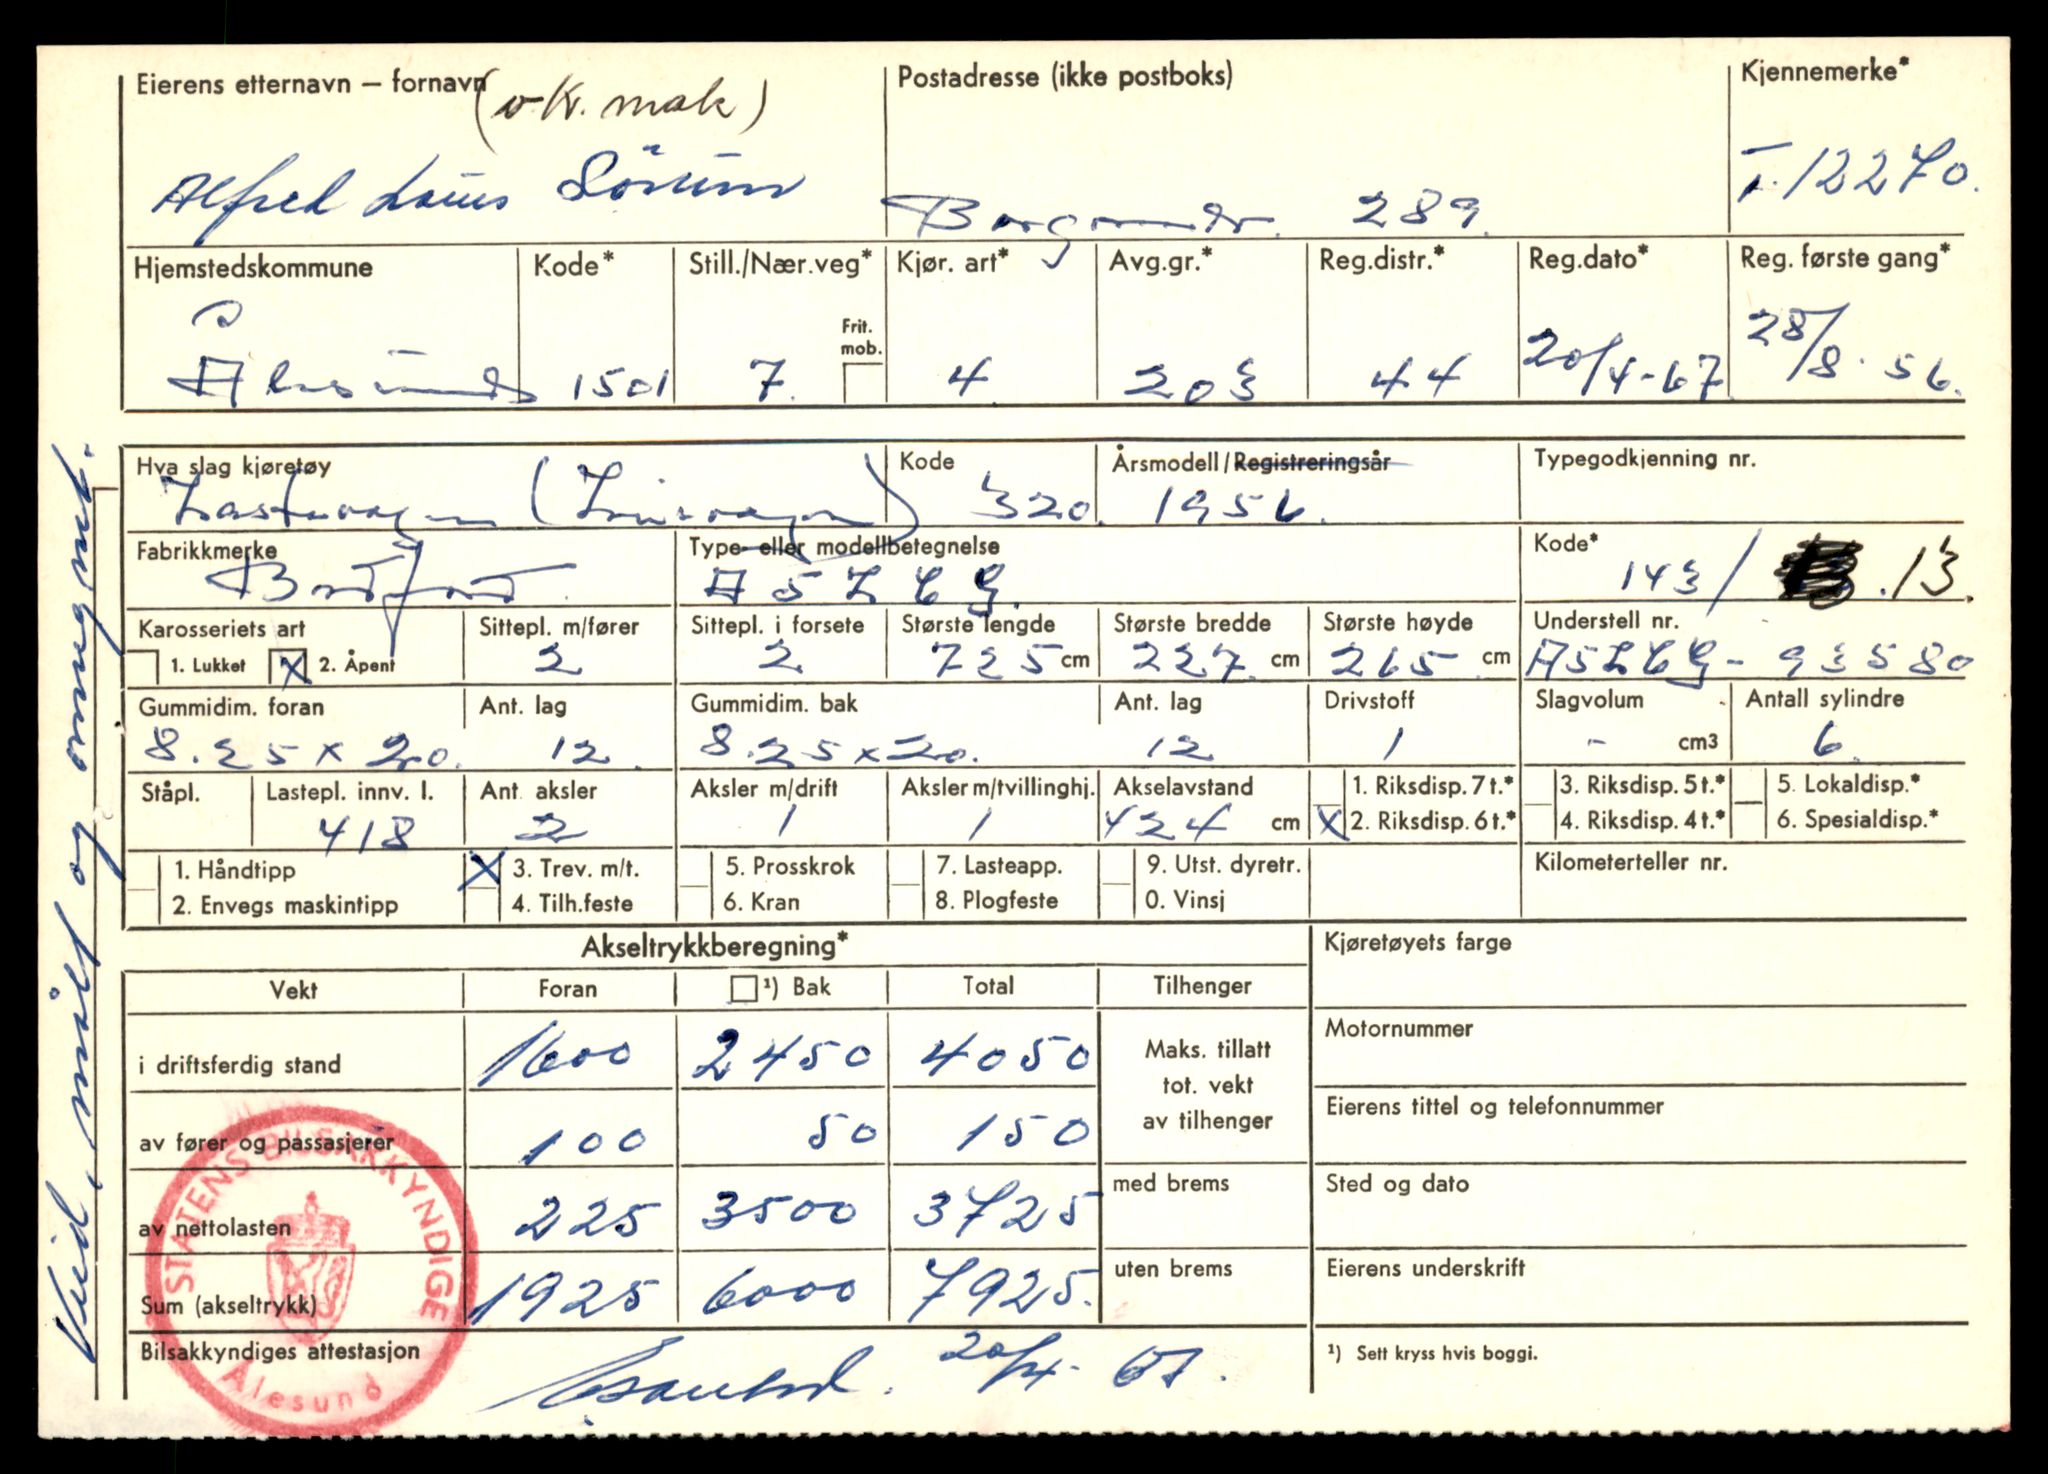 Eierens etternavn – fornavn
(v. Kr. mak)
Postadresse (ikke postboks)
Kjennemerke*
Alfred Louis Sörum
Borgundv. 289.
T.12270.
Hjemstedskommune
Kode*
Still./Nær.veg*
Kjør. art*
Avg.gr.*
Reg.distr.*
Reg.dato*
Reg. første gang*
Frit. mob.
Ålesund
1501
7.
4
203
44
20/4-67
28/8-56.
Hva slag kjøretøy
Kode
Årsmodell/Registreringsår
Typegodkjenning nr.
Lastevogn (Linjevogn)
320.
1956.
Fabrikkmerke
Type- eller modellbetegnelse
Kode*
Bedford.
A5LCG.
143/ .13.
Karosseriets art
Sittepl. m/fører
Sittepl. i forsete
Største lengde
Største bredde
Største høyde
Understell nr.
1. Lukket
X 2. Åpent
2
2
725 cm
227. cm
265 cm
A5LCG-93580
Gummidim. foran
Ant. lag
Gummidim. bak
Ant. lag
Drivstoff
Slagvolum
Antall sylindre
8.25 x 20.
12.
8.25 x 20.
12
1
- cm3
6.
Ståpl.
Lastepl. innv. l.
Ant. aksler
Aksler m/drift
Aksler m/tvillinghj.
Akselavstand
1. Riksdisp. 7 t.*
3. Riksdisp. 5 t.*
5. Lokaldisp.*
418
2
1
1
424 cm
X 2. Riksdisp. 6 t.*
4. Riksdisp. 4 t.*
6. Spesialdisp.*
1. Håndtipp
X 3. Trev. m/t.
5. Prosskrok
7. Lasteapp.
9. Utst. dyretr.
Kilometerteller nr.
2. Envegs maskintipp
4. Tilh.feste
6. Kran
8. Plogfeste
0. Vinsj
Akseltrykkberegning*
Kjøretøyets farge
Vekt
Foran
¹) Bak
Total
Tilhenger
i driftsferdig stand
1600
2450
4050
Maks. tillatt
tot. vekt
av tilhenger
Motornummer
av fører og passasjerer
100
50
150
Eierens tittel og telefonnummer
av nettolasten
225
3500
3725
med brems
Sted og dato
Sum (akseltrykk)
1925
6000
7925.
uten brems
Eierens underskrift
Bilsakkyndiges attestasjon
20/4-67.
¹) Sett kryss hvis boggi.
STATENS BILSAKKYNDIGE
Ålesund
Veid, målt og omregnet.